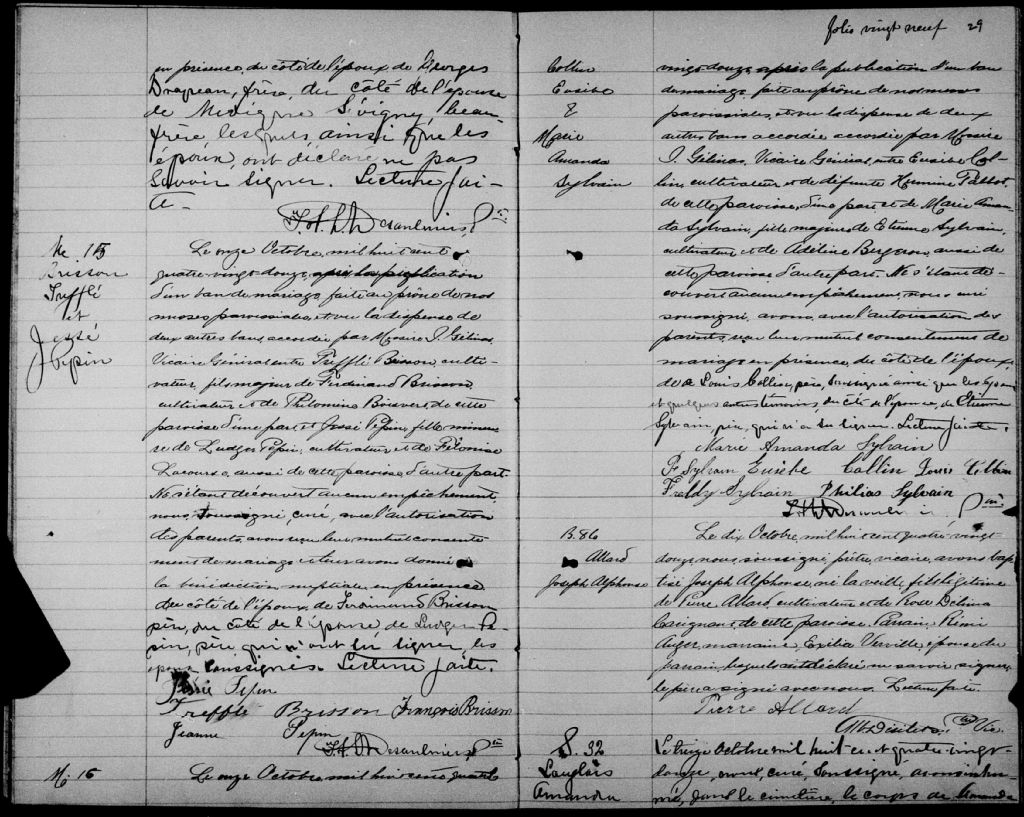 en présence, du côté de l'époux, de Georges
Drapeau, frère, du côté de l'épouse
de Sévigny, beau-
frère lesquels, ainsi que les
époux, ont déclaré ne pas
savoir signer. Lecture fai-
te-
Desaulniers, Ptre
M. 15
Brisson
Trefflé
et
Jessé
Pepin
Le onze Octobre, mil huit cent
quatre-vingt-douze, après la publication
d'un ban de mariage faite au prône de nos
messes paroissiales, et vu la dispense de
deux autres bans, accordée par Messire I. Gélinas,
Vicaire Général entre Trefflé Brisson, culti-
vateur, fils majeur de Ferdinand Brisson,
cultivateur et de Philomène Boisvert, de cette
paroisse d'une part, et Jessé Pepin, fille mineu-
re de Ludger Pepin, cultivateur et de
Lacourse, aussi de cette paroisse d'autre part.
Ne s'étant découvert aucun empêchement,
nous, soussigné, curé, avec l'autorisation
des parents, avons reçu leur mutuel consente-
ment de mariage et leur avons donné
la bénédiction nuptiale, en présence
du côté de l'époux, de Ferdinand Brisson
père, du côté de l'épouse, de Ludger Pe-
pin, père, qui n'ont su signer, les
époux soussignés. Lecture faite.
Pepin
Treffle Brisson François Brisson
Jeanne Pepin
Desaulniers, Ptre
M. 16
Le onze Octobre mil huit cent quatre
folio vingt neuf 29
Collin
Eusèbe
&
Marie
Amanda
Sylvain
vingt-douze, après la publication d'un ban
de mariage, faite au prône de nos messes
paroissiales, et vu la dispense de deux
autres bans accordée accordée par Messire
I. Gélinas, Vicaire Général, entre Eusèbe Col-
lin, cultivateur et de défunte Hermine Talbot,
de cette paroisse, d'une part, et de Marie Aman-
da Sylvain, fille majeure de Etienne Sylvain,
cultivateur et de Adéline Bergeron, aussi de
cette paroisse d'autre part. Ne s'étant dé-
couvert aucun empêchement, nous, curé
soussigné, avons, avec l'autorisation des
parents, reçu leur mutuel consentement de
mariage en présence, du côté de l'époux,
de Louis Collin, père, soussigné ainsi que les époux
et quelques autres témoins, du côté de l'épouse, de Etienne
Sylvain, père, qui n'a su signer. Lecture faite.
Marie Amanda Sylvain
F Sylvain Eusèbe Collin Louis Collin
Freddy Sylvain Philias Sylvain
Desaulniers Ptre
B. 86
Allard
Joseph Alphonse
Le dix Octobre, mil huit cent quatre-vingt-
douze, nous, soussigné, prêtre, vicaire, avons bap-
tisé Joseph Alphonse, né la veille, fils légitime
de Pierre Allard, cultivateur et de Rose Délima
Carignan, de cette paroisse. Parrain, Rémi
Auger, marraine, Exilia Verville, épouse du
parrain, lesquels ont déclaré ne savoir signer,
le père a signé avec nous. Lecture faite.
Pierre Allard
Ptre Vic.
S. 32
Langlois
Amanda
Le treize Octobre mil huit cent quatre-vingt-
douze, avons, curé, soussigné, avons inhu-
mé, dans le cimetière, le corps de Amanda